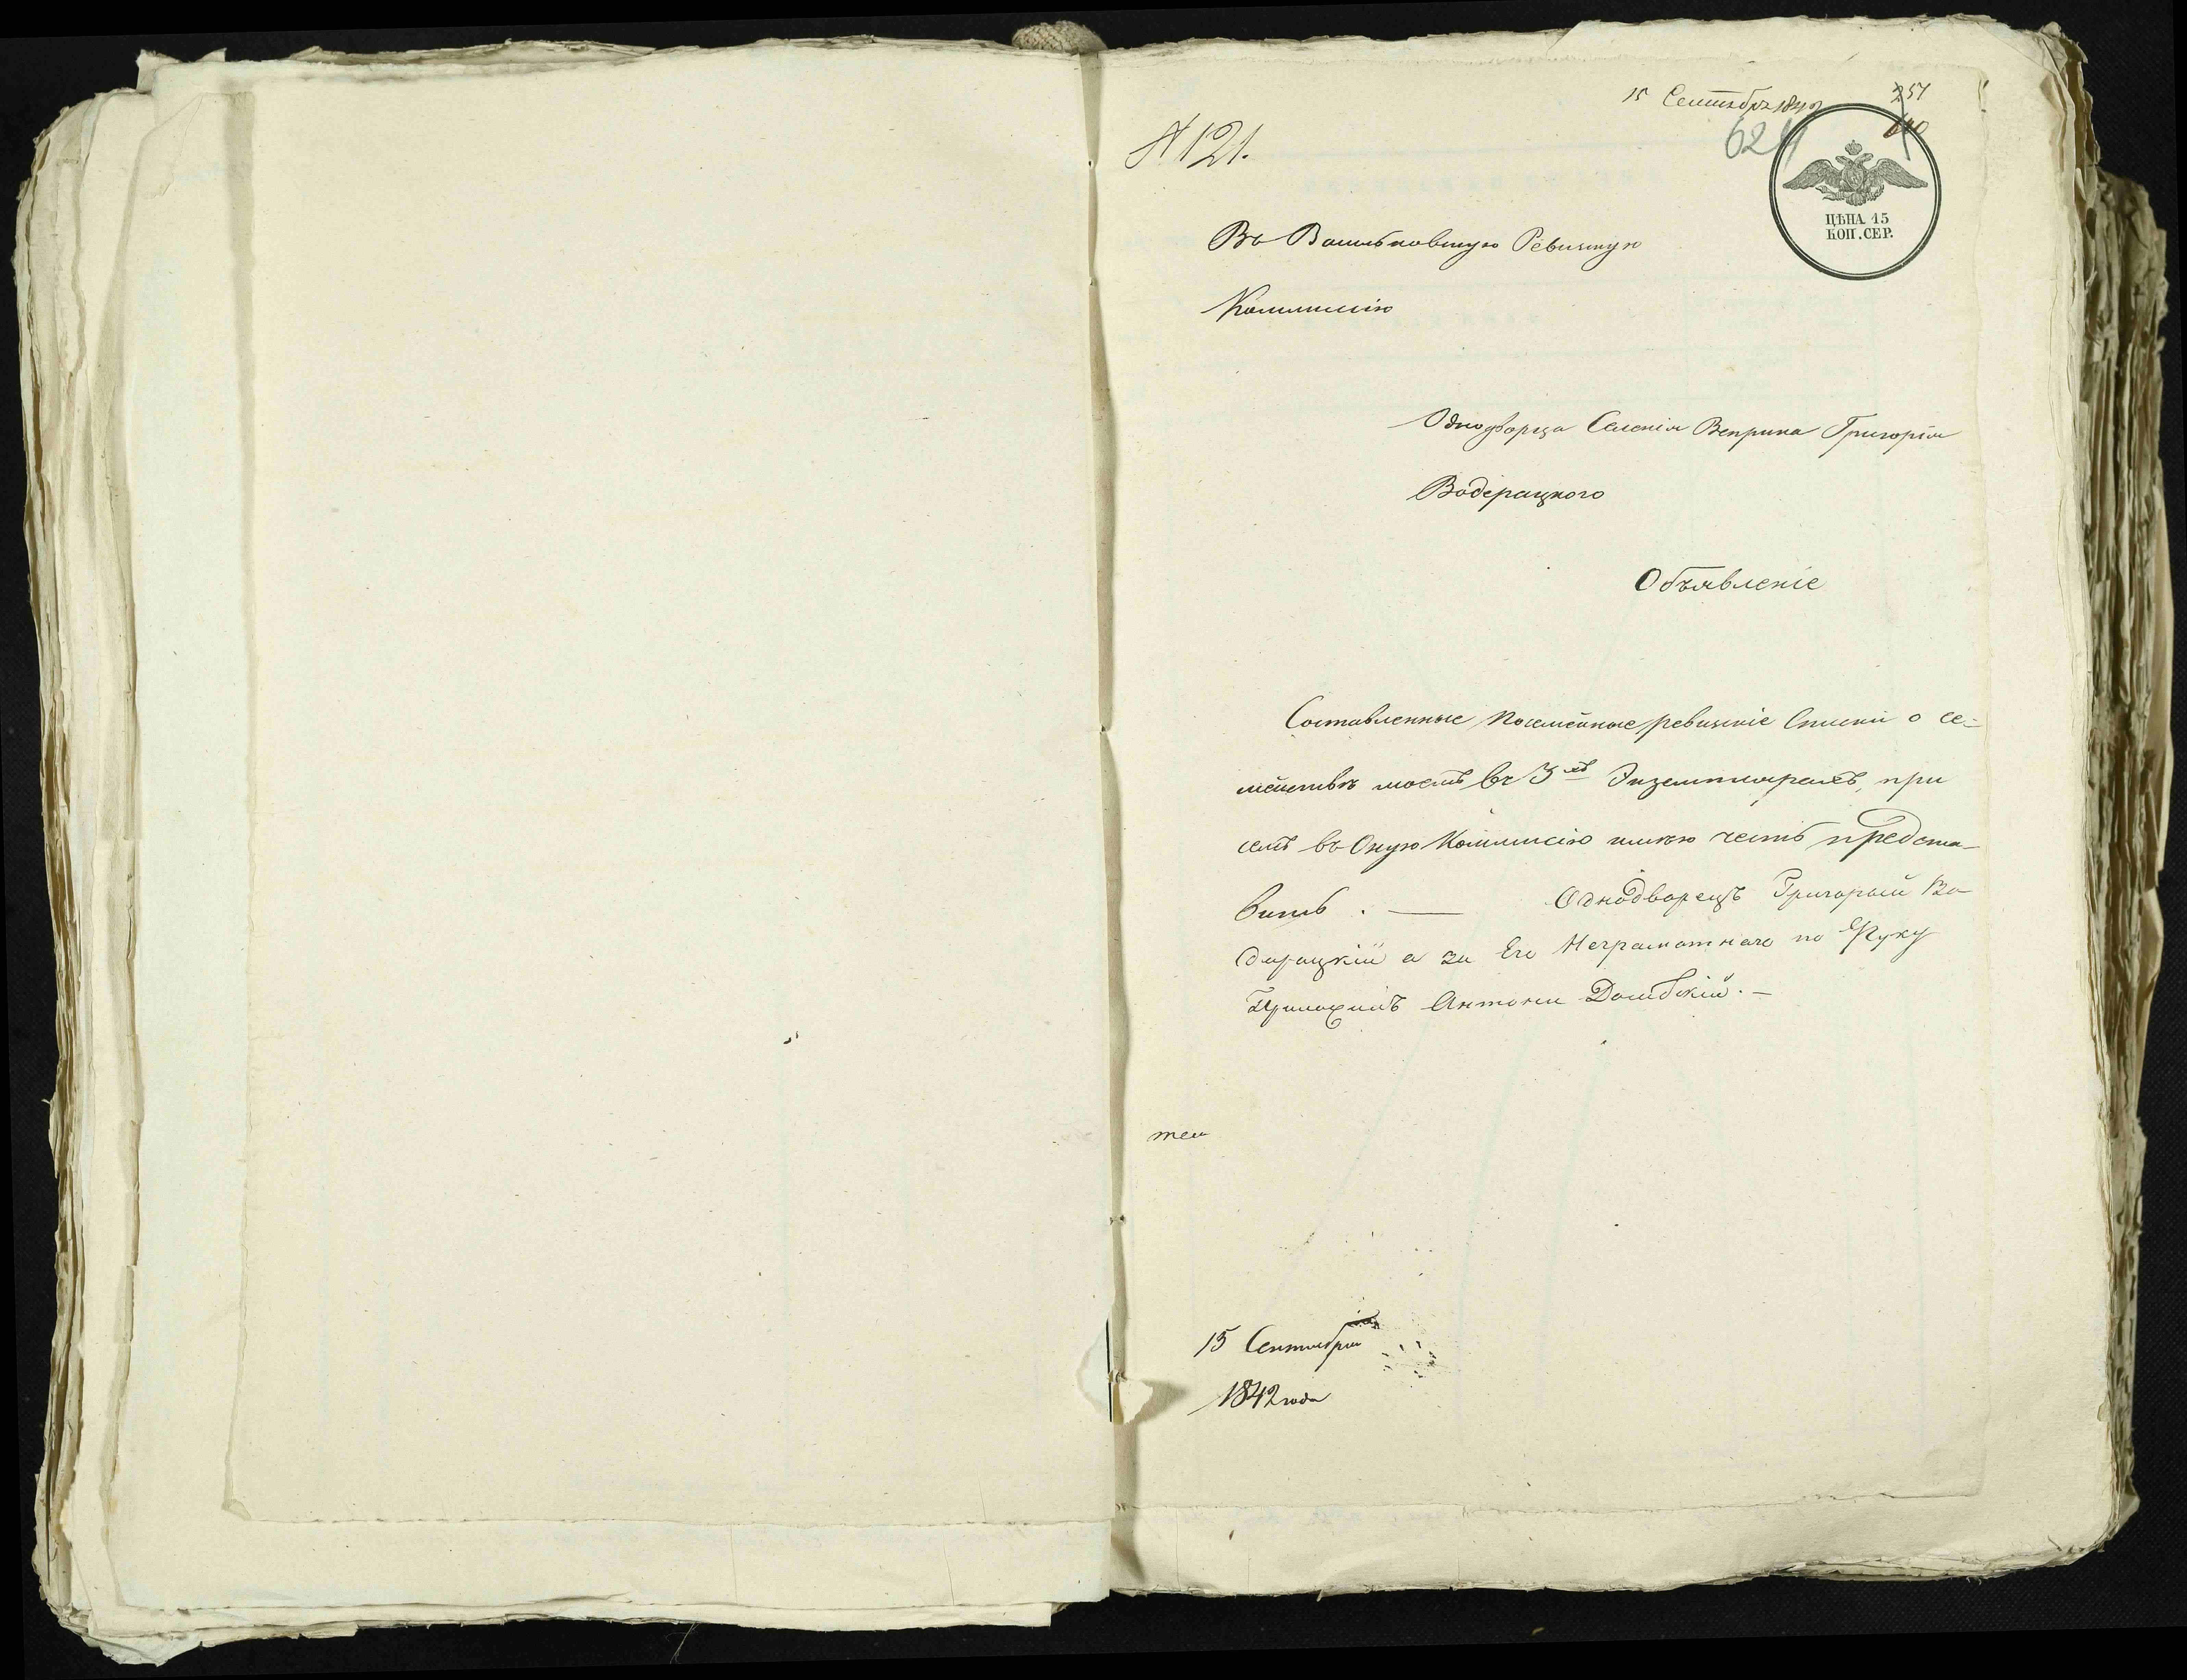 15 Сентября 1842
257
624
№ 121.
ЦѢНА 15
КОП. СЕР.
Въ Васильковскую Ревизскую
Коммиссію
Однодворца Селенія Веприна Григорія
Водерацкого
Объявленіе
Составленные Посемейные ревизскіе Списки о се-
мействѣ моемъ въ 3хъ Экземплярахъ, при
семъ въ Оную Коммисію имѣю честь предста-
вить. — Однодворецъ Григорий Во-
дерацкій а за Его Неграмотнаго по Руку
Приложилъ Антони Домбскій. —
15 Сентября
1842 года